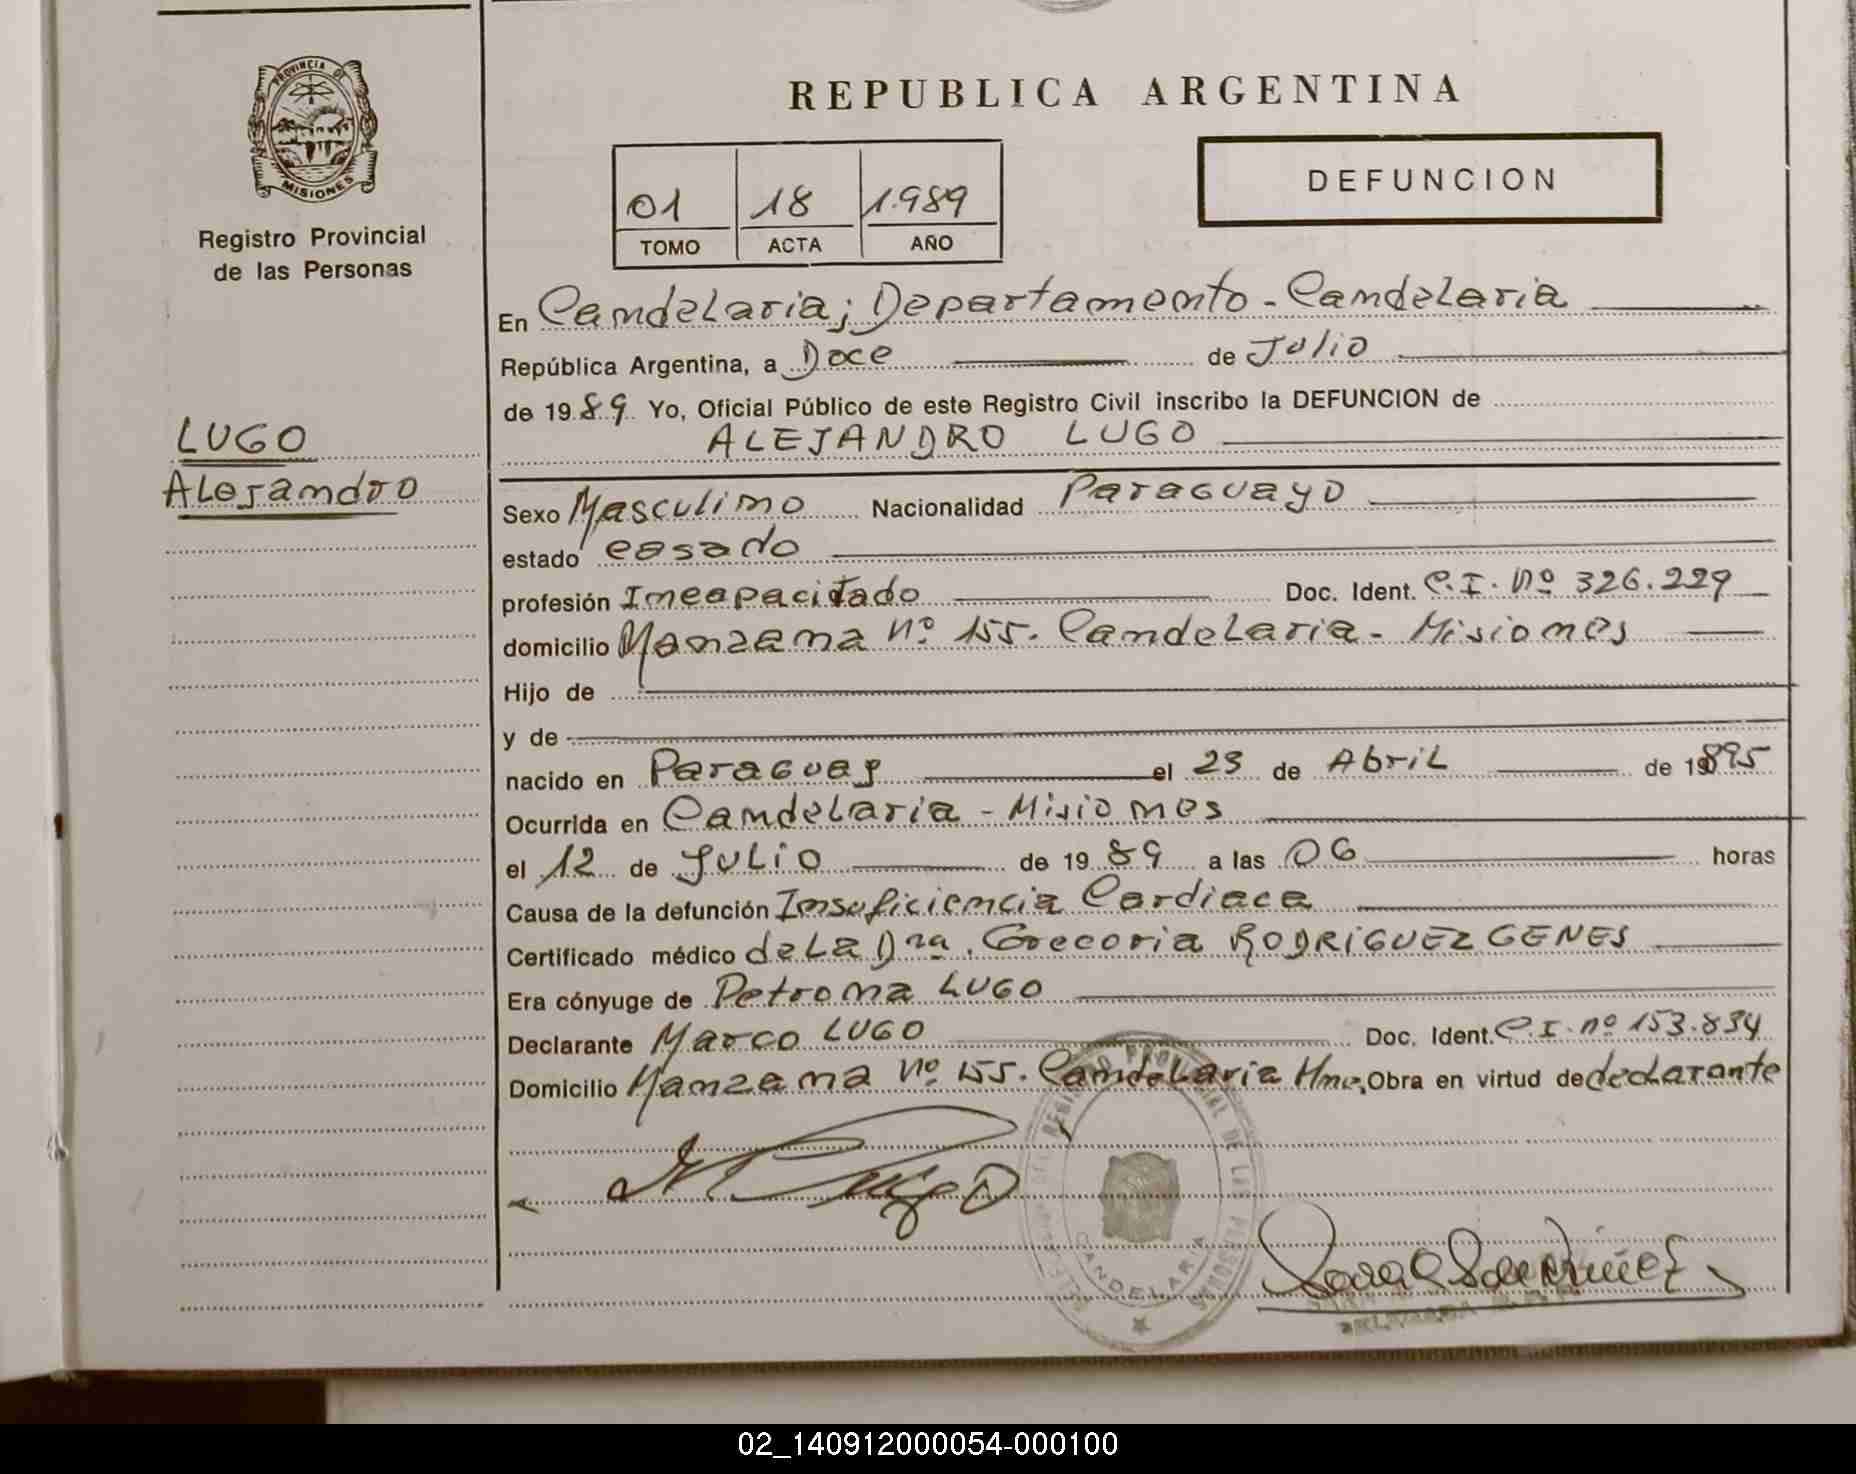 PROVINCIA DE
MISIONES
Registro Provincial
de las Personas
LUGO
Alejandro
REPUBLICA ARGENTINA
01 18 1.989
TOMO ACTA AÑO
DEFUNCION
En Candelaria; Departamento - Candelaria
República Argentina, a Doce de Julio
de 1989 Yo, Oficial Público de este Registro Civil inscribo la DEFUNCION de
ALEJANDRO LUGO
Sexo Masculino Nacionalidad Paraguayo
estado casado
profesión Incapacitado Doc. Ident. C.I. Nº 326.229
domicilio Manzana nº 155. Candelaria - Misiones
Hijo de
y de
nacido en Paraguay el 23 de Abril de 1895
Ocurrida en Candelaria - Misiones
el 12 de Julio de 1989 a las 06 horas
Causa de la defunción Insuficiencia Cardiaca
Certificado médico de La Dra. Gregoria RODRIGUEZ GENES
Era cónyuge de Petrona LUGO
Declarante Marco LUGO Doc. Ident. C.I. nº 153.834
Domicilio Manzana nº 155. Candelaria Mnes. Obra en virtud de declarante
REGISTRO PROVINCIAL DE LAS PERSONAS
CANDELARIA
02_140912000054-000100